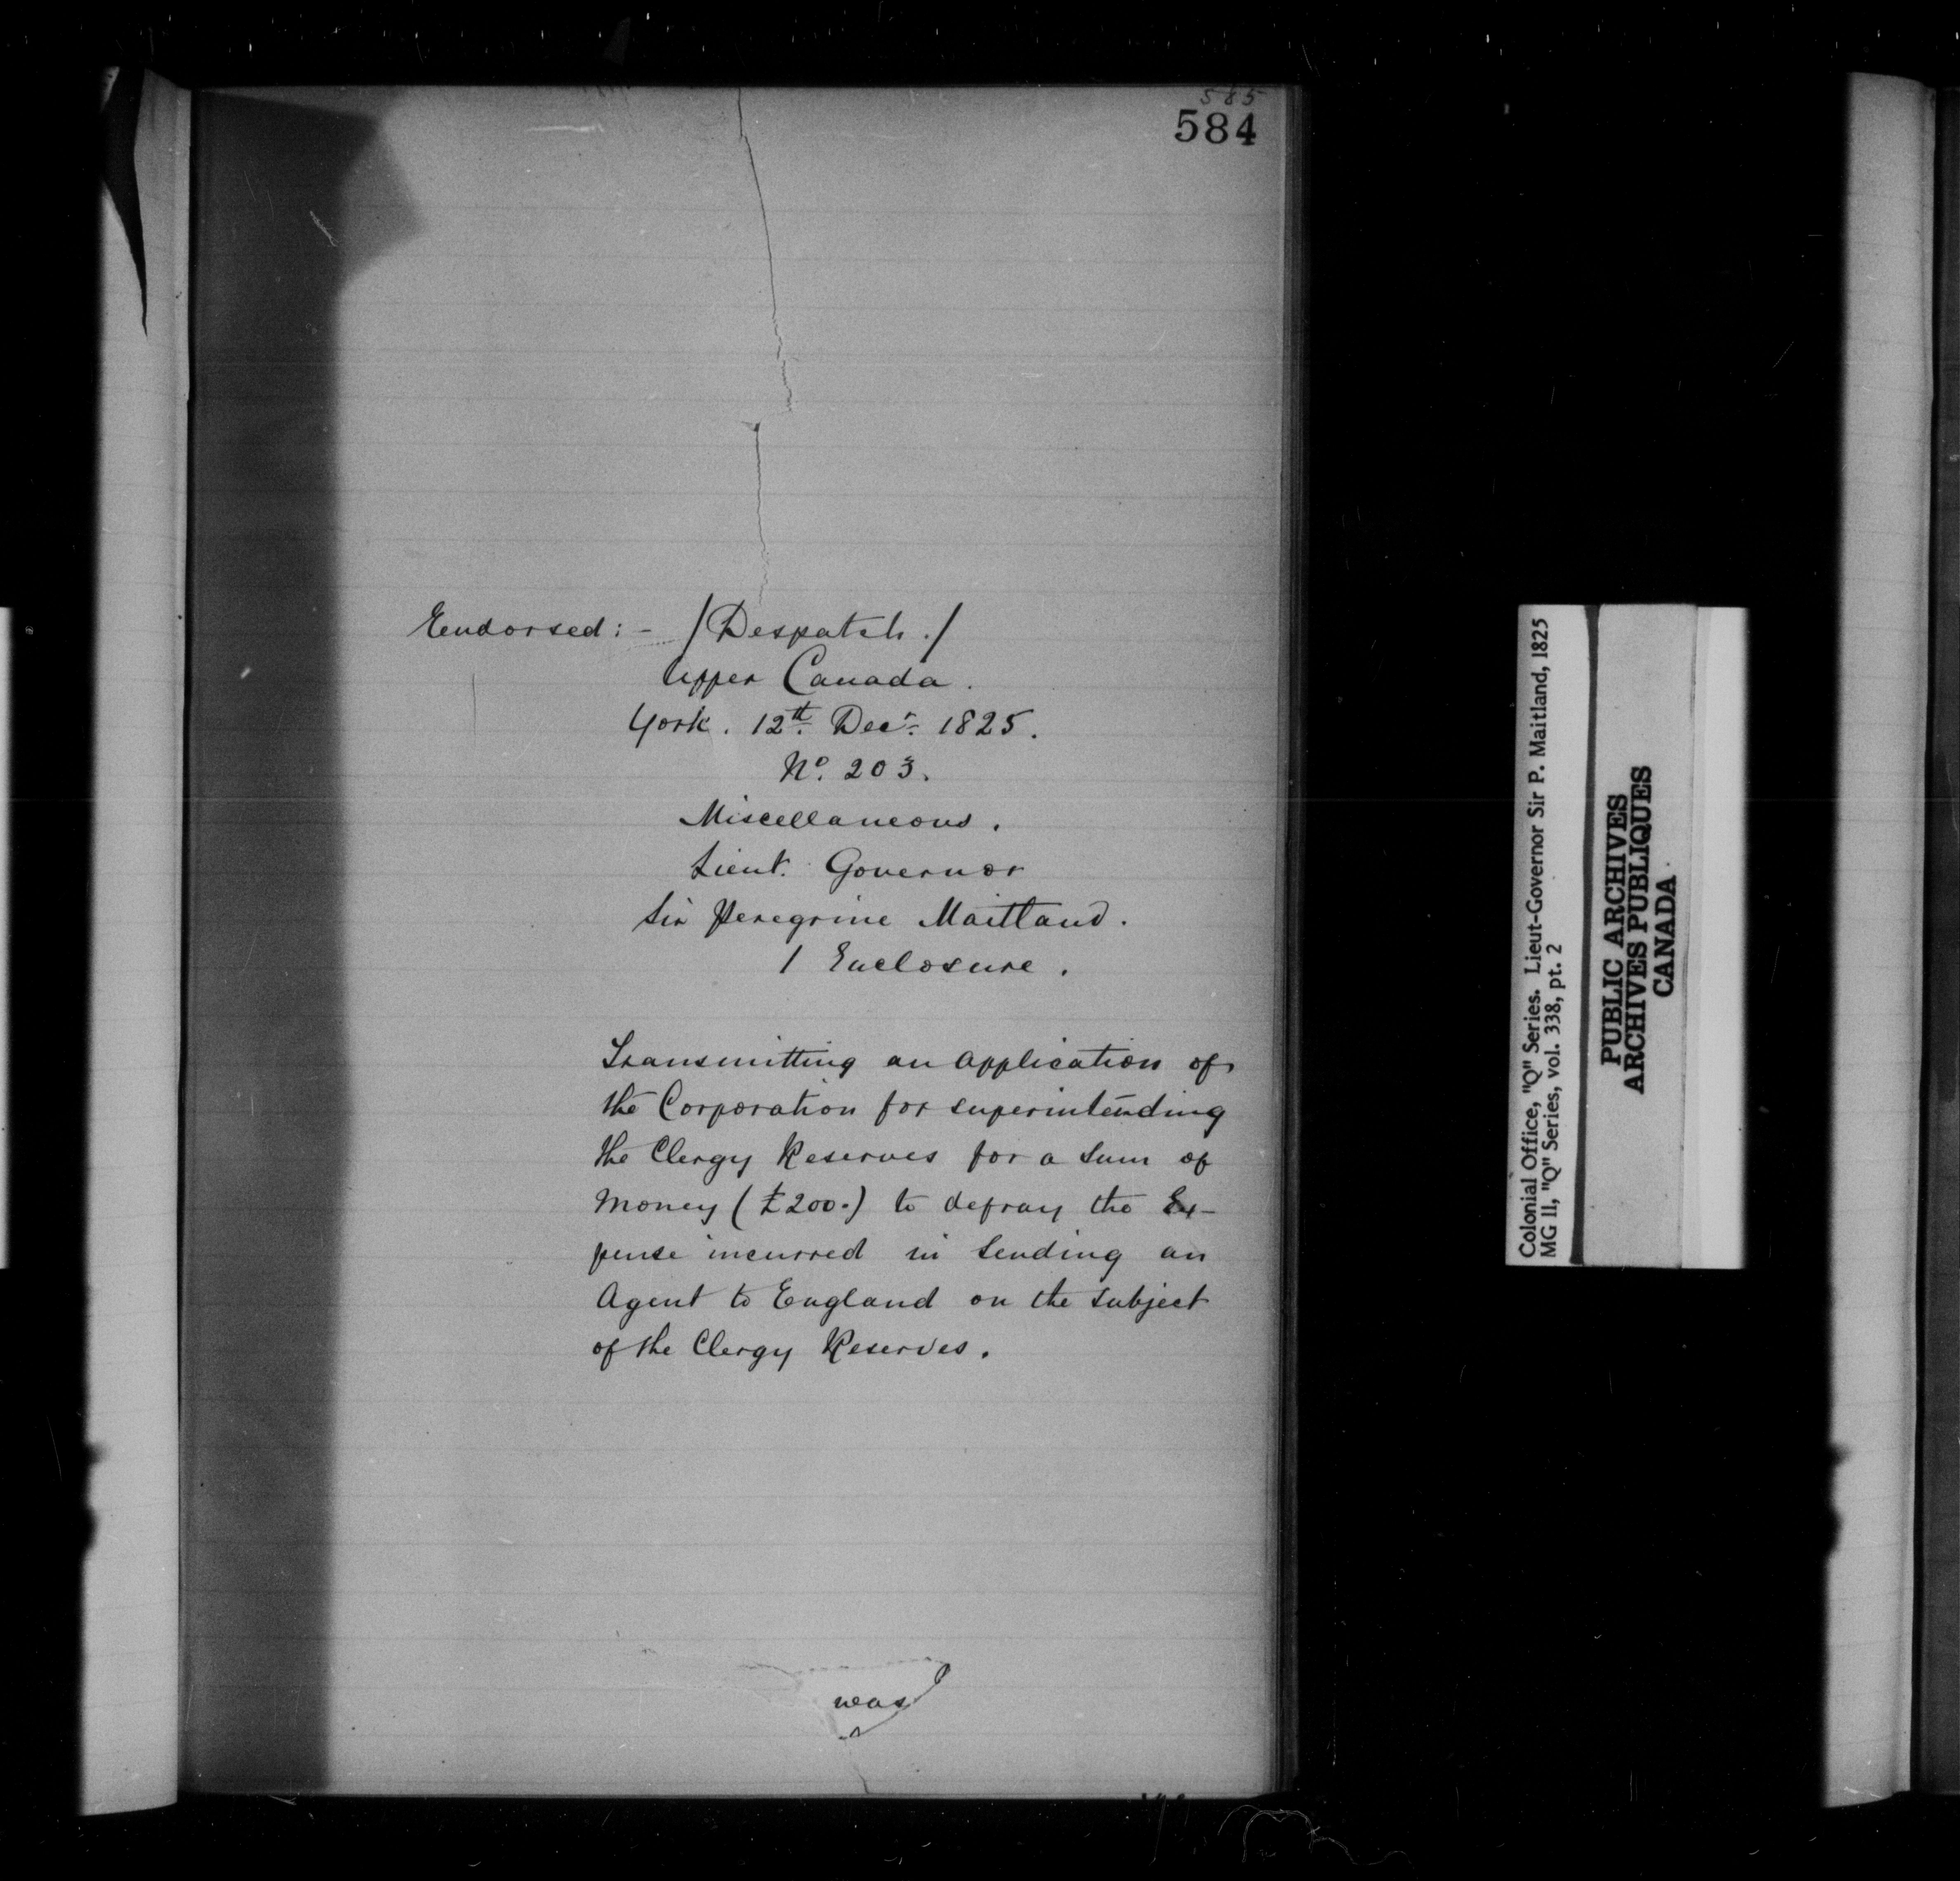 585
584
Endorsed:- /Despatch./
Upper Canada.
York. 12th. Decr. 1825.
No. 203.
Miscellaneous.
Lieut. Governor
Sir Peregrine Maitland.
1 Enclosure.
Transmitting an application of
the Corporation for superintending
the Clergy Reserves for a Sum of
Money (£200.) to defray the Ex-
pense incurred in Sending an
Agent to England on the Subject
of the Clergy Reserves.
was
Colonial Office, "Q" Series. Lieut-Governor Sir P. Maitland, 1825
MG 11, "Q" Series, vol. 338, pt. 2
PUBLIC ARCHIVES
ARCHIVES PUBLIQUES
CANADA